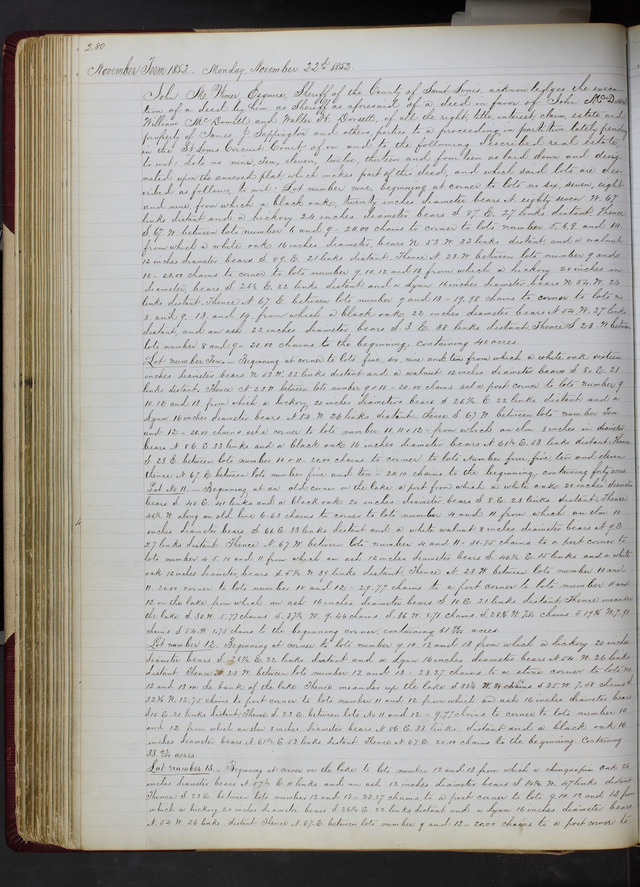 280
November Term 1852 - Monday, November 22d 1852.
Esquire, Sheriff of the County of Saint Louis, acknowledges the execu-
tion of a deed by him as Sheriff as aforesaid, of a deed in favor of John McD
William McDowell and Walter H. Dorsett, of all the right, title, interest, claim, estate and
property of James J. Sappington and others, parties to a proceeding in partition lately pending
in the St Louis Circuit Court of, in and to the following described real estate,
to wit: Lots no nine, ten, eleven, twelve, thirteen and fourteen as laid down and desig-
nated upon the annexed plat which makes part of this deed, and which said lots are des-
cribed as follows, to wit: Lot number nine, beginning at corner to lots no six, seven, eight
and nine, from which a black oak, twenty inches diameter bears N. eighty seven W. 67
links distant and a hickory 24 inches diameter bears S 87 E. 27 links distant. Thence
S. 67 W. between lots number 6 and 9 - 20.00 chains to corner to lots number 5. 6. 9. and 10.
from which a white oak 16 inches diameter, bears N 53. W. 32 links distant, and a walnut
12 inches diameter bears S 89 E. 21 links distant. Thence N. 23. W between lots number 9 and
10 - 20.00 chains to corner to lots number 9. 10. 12 and 13 from which a hickory 20 inches in
diameter, bears S 26¼ E. 22 links distant and a Lynn 16 inches diameter bears N 54. W. 26
links distant. Thence N. 67 E between lots number 9 and 13 - 19.98 chains to corner to lots no
8. and 9. 13. and 14 from which a black oak 22 inches diameter bears N 54. W. 27 links
distant, and an ash 22 inches diameter, bears S 3 E. 38 links distant. Thence S 23. E between
lots number 8 and 9 - 20.00 chains to the beginning, containing 40 acres.
Lot number Ten - Beginning at corner to lots five, six, nine and ten from which a white oak sixteen
inches diameter bears N 53. W. 32 links distant and a walnut 12 inches diameter bears S 89 E. 21
links distant. Thence N 23 W between lots number 9 & 10 - 20.00 chains set a post corner to lots number 9
10. 12 and 13, from which a hickory 20 inches diameter bears S 26¼ E 22 links distant and a
Lynn 16 inches diameter bears N 54. W. 26 links distant. Thence S 67 W between lots number Ten
and 12 - 20.11 chains set a corner to lots number 10. 11 & 12 - from which an elm 8 inches in diameter
bears N 86 E 33 links and a black oak 16 inches diameter bears N 61¼ E. 53 links distant. Thence
S. 23 E. between lots number 10 & 11. 20.00 chains to corner to lots Number four, five, ten and eleven
thence N. 67. E. between lots number five and ten - 20.11 chains to the beginning, containing forty acres.
Lot No. 11. - Beginning at an old corner on the lake a post from which a white oak 20 inches diameter
bears S. 42 E. 41 links and a black oak 20 inches diameter bears S 8. E. 23 links distant. Thence
along an old line 6.63 chains to corner to lots number 4 and 11 from which an elm 10
inches diameter bears S. 66 E. 33 links distant and a white walnut 8 inches diameter bears N 9 E
27 links distant. Thence N. 67 W. between lots number 4 and 11 - 30.75 chains to a post corner to
lots number 4. 5. 10 and 11 from which an ash 12 inches diameter bears S. 46¼ E. 15 links and a white
oak 12 inches diameter, bears S. 5¼ W. 39 links distant. Thence N. 23 W. between lots number 10 and
11. 20.00 corner to lots number 10 and 12 - 29.77 chains to a post corner to lots number 11 and
12 on the lake, from which an ash 16 inches diameter bears S 10 E. 21 links distant. Thence meander
the lake S 30 W 5.77 chains S. 37¼ W. 9.44 chains S. 36 W. 8.71 chains S. 28¾ W. 7.81 chains S 19¼ W. 7.91
chains S 54. W. 1.75 chains to the beginning corner, containing acres.
Lot number 12. Beginning at corner to lots number 9. 10. 12 and 13 from which a hickory 20 inches
diameter bears S. 26¼ E. 22 links distant and a Lynn 16 inches diameter bears N 54 W. 26 links
distant. Thence N. 23 W between lots number 12 and 13 - 23.27 chains to a stone corner to lots no
12 and 13 on the bank of the lake. Thence meander up the lake S chains S 35 W. 7.52 chains S
32¾ W. 12.75 chains to post corner to lots number 11 and 12 from which an ash 16 inches diameter bears
S 10 E. 21 links distant. Thence S. 23 E. between lots No 11 and 12 - 9.77 chains to corner to lots number 10
and 12 from which an elm 8 inches diameter bears N 86 E. 33 links distant and a black oak 16
inches diameter bears N 61¼ E. 53 links distant Thence N 67 E. 20.11 chains to the beginning. Containing
acres.
Lot number 13. - Beginning at corner on the lake to lots number 12 and 13 from which a chinquepin oak 24
inches diameter bears N 57¼ E. 11 links and an ash 12 inches diameter bears S 10¼ W. 47 links distant
Thence S 23 E between lots number 12 and 13 - 23.27 chains to a post corner to lots 9. 10. 12 and 13 from
which a hickory 20 inches diameter bears S 26¼ E. 22 links distant and a Lynn 16 inches diameter bears
N. 54. W 26 links distant. Thence N. 67. E between lots number 9 and 13 - 20.00 chains to a post corner to